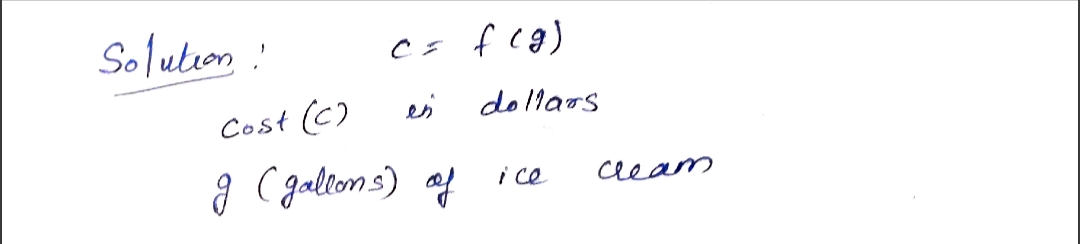 Solution : c = f (g)
Cost (C) in dollars
g (gallons) of ice cream